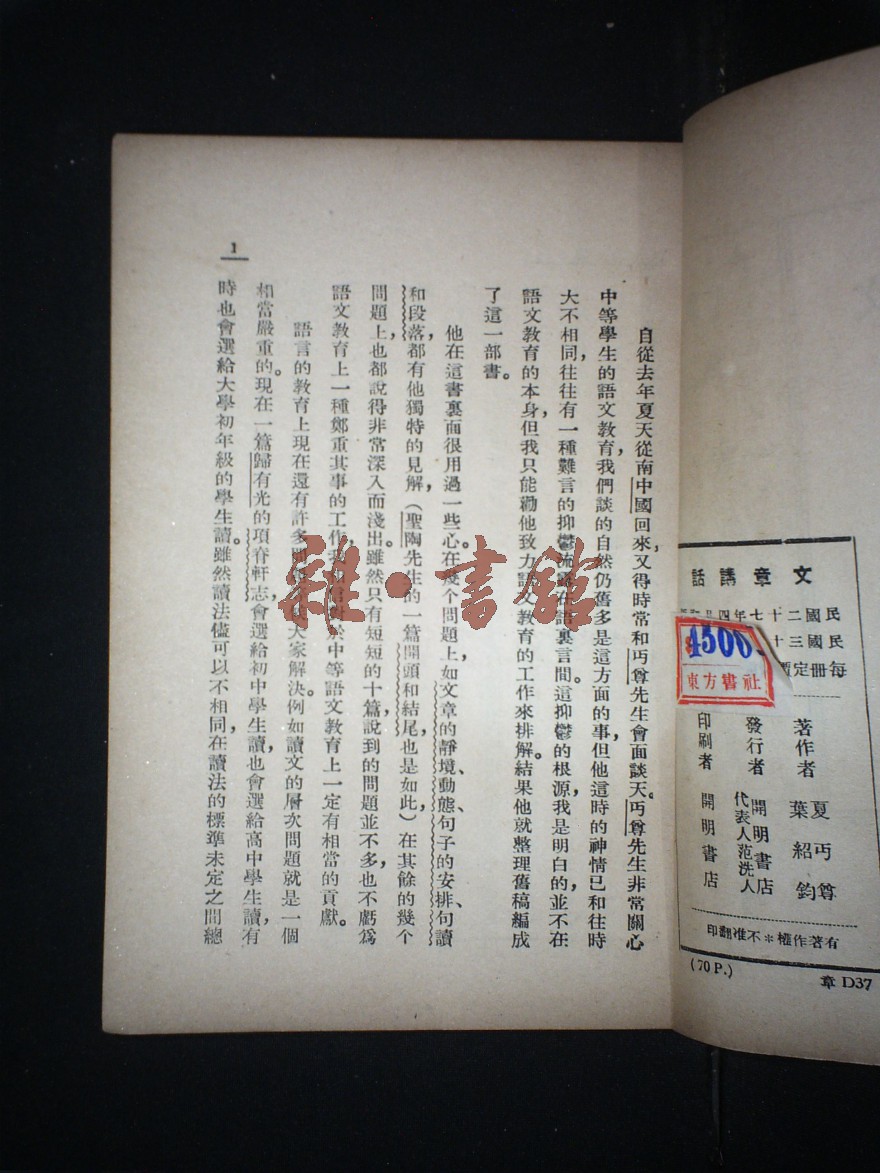 文章講話
民國二十七年四
民國三十
每冊定價
4500
東方書社
著作者 夏丏尊 葉紹鈞
發行者 開明書店 代表人范洗人
印刷者 開明書店
有著作權*不准翻印
(70 P.) 章 D37
1
自從去年夏天從南中國回來，又得時常和丏尊先生會面談天。丏尊先生非常關心
中等學生的語文教育，我們談的自然仍舊多是這方面的事，但他這時的神情已和往時
大不相同，往往有一種難言的抑鬱流露在語裏言間。這抑鬱的根源，我是明白的，並不在
語文教育的本身，但我只能勸他致力語文教育的工作來排解。結果他就整理舊稿編成
了這一部書。
他在這書裏面很用過一些心。在幾個問題上，如文章的靜境、動態、句子的安排、句讀
和段落，都有他獨特的見解，（聖陶先生的一篇開頭和結尾，也是如此，）在其餘的幾个
問題上，也都說得非常深入而淺出。雖然只有短短的十篇，說到的問題並不多，也不虧爲
語文教育上一種鄭重其事的工作，我相信對於中等語文教育上一定有相當的貢獻。
語言的教育上現在還有許多問題 大家解決。例如讀文的層次問題就是一個
相當嚴重的。現在一篇歸有光的項脊軒志，會選給初中學生讀，也會選給高中學生讀，有
時也會選給大學初年級的學生讀。雖然讀法儘可以不相同，在讀法的標準未定之間總
雜·書館